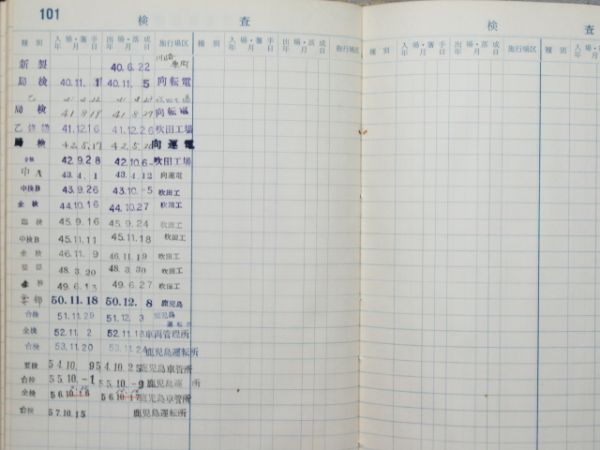 101
検 査
検 査
種別 入場・着手 年月日 出場・落成 年月日 施行場区 種別 入場・着手 年月日 出場・落成 年月日 施行場区
種別 入場・着手 年月日 出場・落成 年月日 施行場区 種別
新製 40.6.22
局検 40.11.1 40.11.5 向転電
乙
局検 向転電
乙修繕 41.12.16 41.12.26 吹田工場
局検 向運電
全検 42.9.28 42.10.6 吹田工場
中A 43.4.1 43.4.13 向運電
中検B 43.9.26 43.10.-5 吹田工
全検 44.10.16 44.10.27 吹田工
臨検 45.9.16 45.9.24 吹田工
中検B 45.11.11 45.11.18 吹田工
全検 46.11.9 46.11.19 吹田工
48.3.20 48.3.30 吹田工
49.6.13 49.6.27 吹田工
50.11.18 50.12.8 鹿児島
台検 51.11.29 51.12.3 鹿児島
全検 52.11.2 52.11.18 車両管理所
台検 53.11.20 53.11.24 鹿児島運転所
要検 54.10.9 54.10.25 鹿児島車管所
台検 55.10.-1 55.10.-9 鹿児島運 所
全検 56.10.16 56.10.17 鹿児島車管所
台検 57.10.15 鹿児島運転所